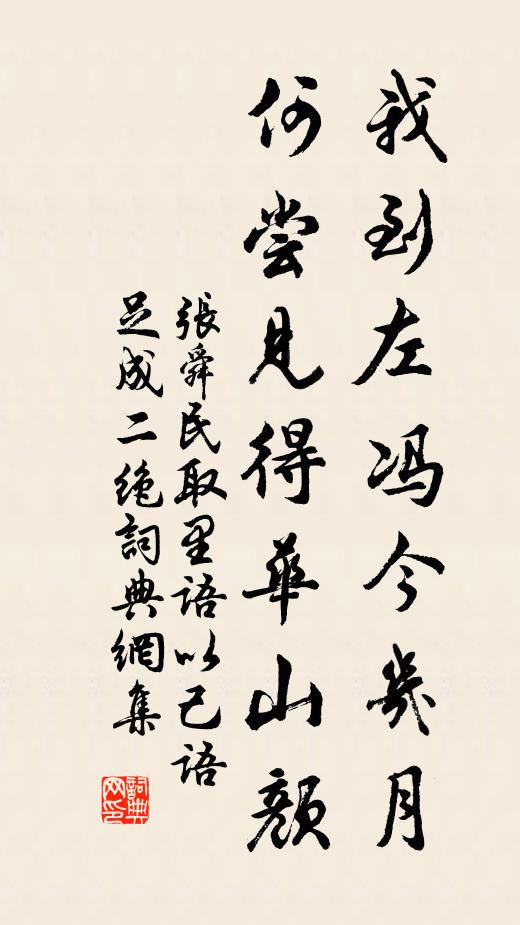 我到左冯今幾月
何尝見得華山顏
張舜民取里語以己語
足成二绝詞典網集
詞典网印